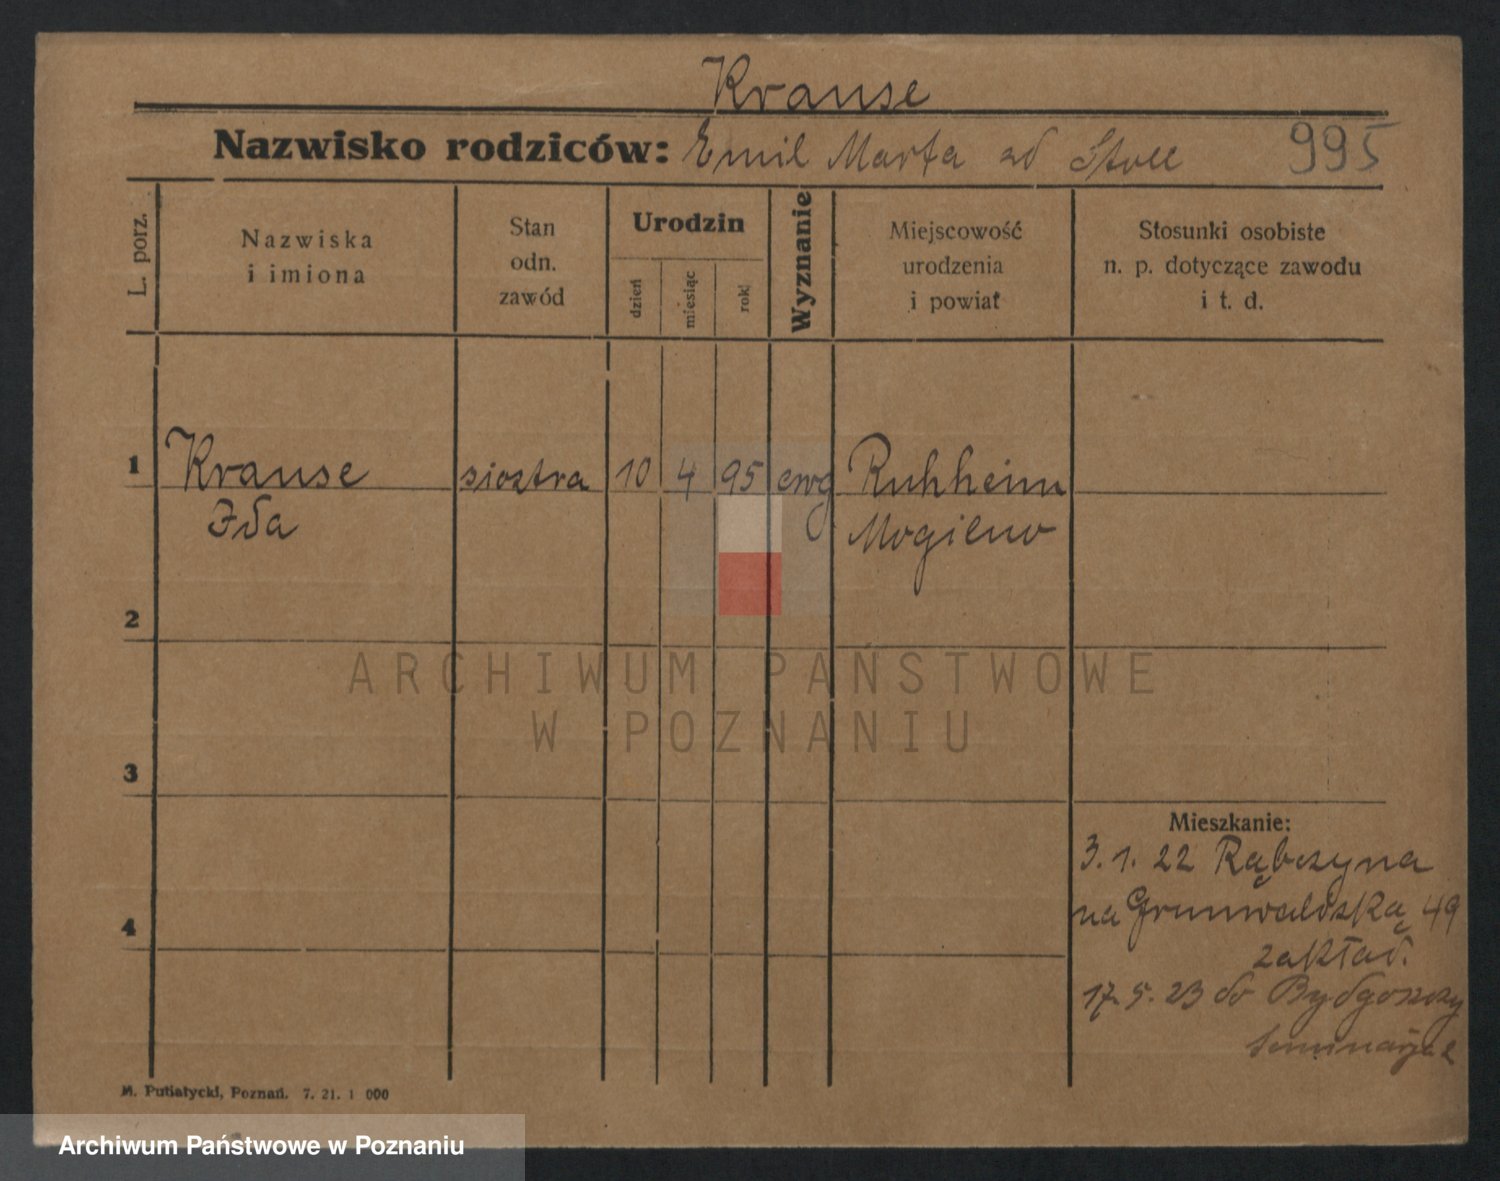 Krause
Nazwisko rodziców: Emil Marta zd Stoll 995
L. porz.
Nazwiska
i imiona
Stan
odn.
zawód
Urodzin
dzień
miesiąc
rok
Wyznanie
Miejscowość
urodzenia
i powiat
Stosunki osobiste
n. p. dotyczące zawodu
i t. d.
1 Krause siostra 10 4 95 ewg Ruhheim
Ida Mogilno
2
ARCHIWUM PAŃSTWOWE
W POZNANIU
3
Mieszkanie:
3. 1. 22 Rąbczyna
na Grunwaldzką 49
4
zakład.
17. 5. 23 do Bydgoszczy
M. Putiatycki, Poznań. 7. 21. 1 000
Archiwum Państwowe w Poznaniu